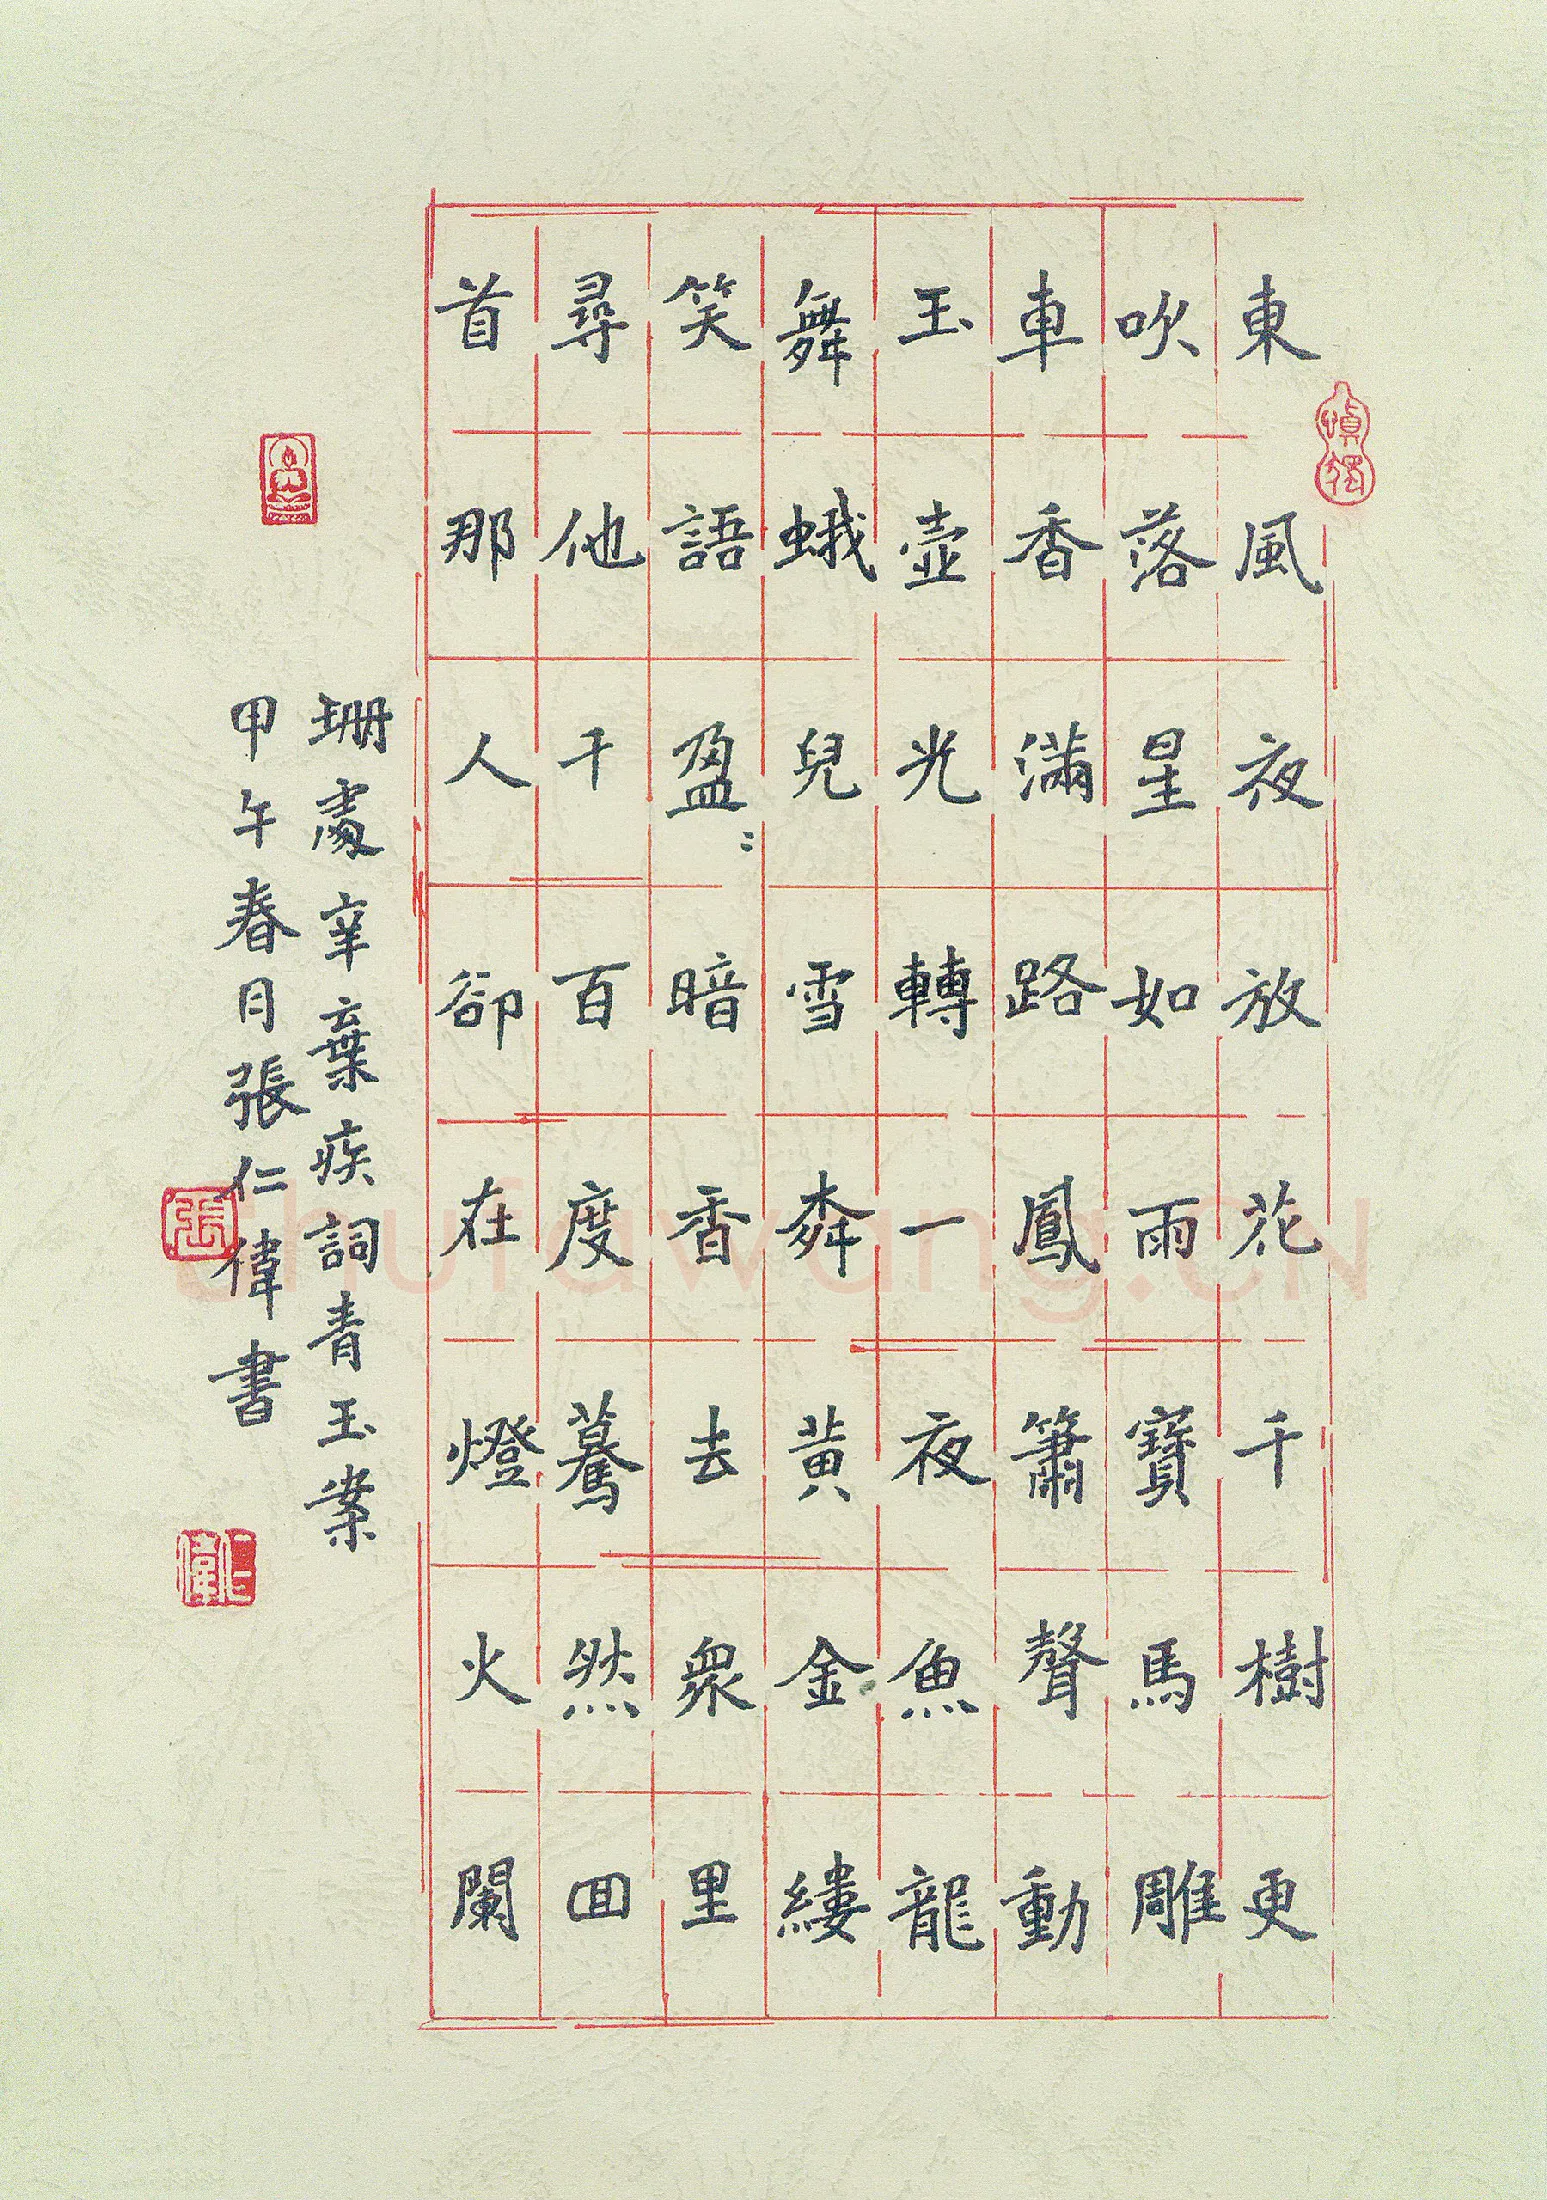 東風夜放花千樹更
吹落星如雨寶馬雕
車香滿路鳳簫聲動
玉壺光轉一夜魚龍
舞蛾兒雪柳黃金縷
笑語盈:暗香去眾里
尋他千百度驀然回
首那人卻在燈火闌
珊處辛棄疾詞青玉案
甲午春月張仁偉書
慎獨
張
仁偉
shufawang.CN